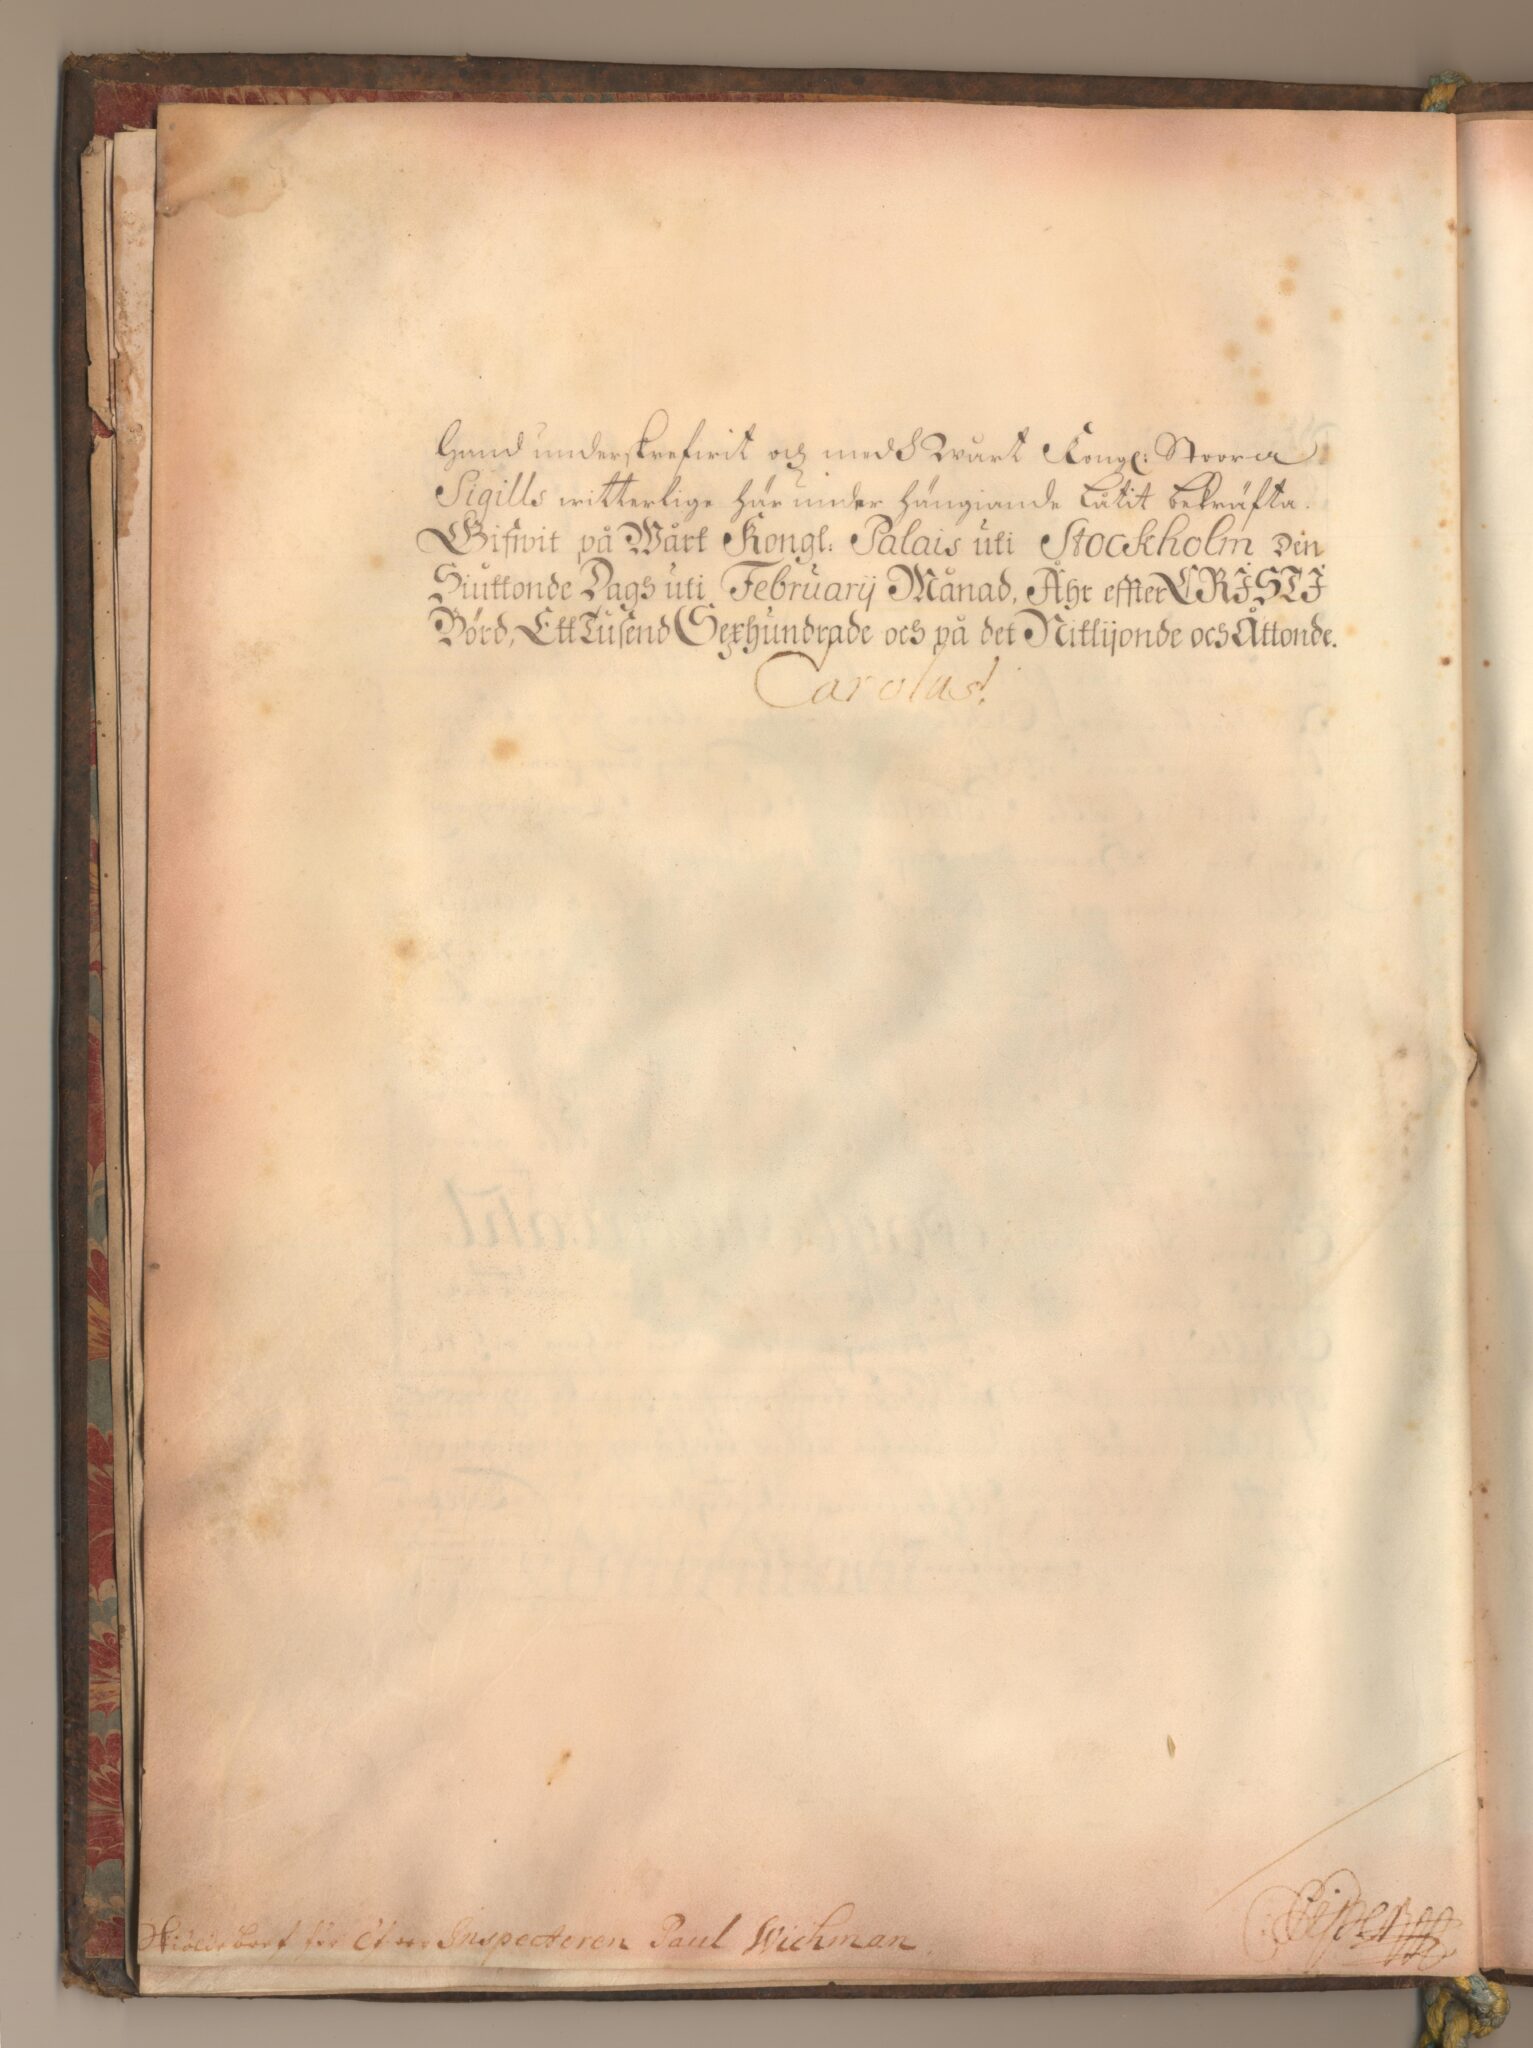 Hand underskrefwit och med Wårt Kongl: Stoora
Sigills witterlige här under hängiande Låtit bekräfta.
Gifwit på Wårt Kongl: Palais uti Stockholm den
Siuttonde Dags uti Februarij Månad, Åhr effter CRISTI
Börd, Ett Tusend Sexhundrade och på det Nittijonde och Åttonde.
Carolus.
Skiöldebref för Inspecteren Paul Wichman.
Piper